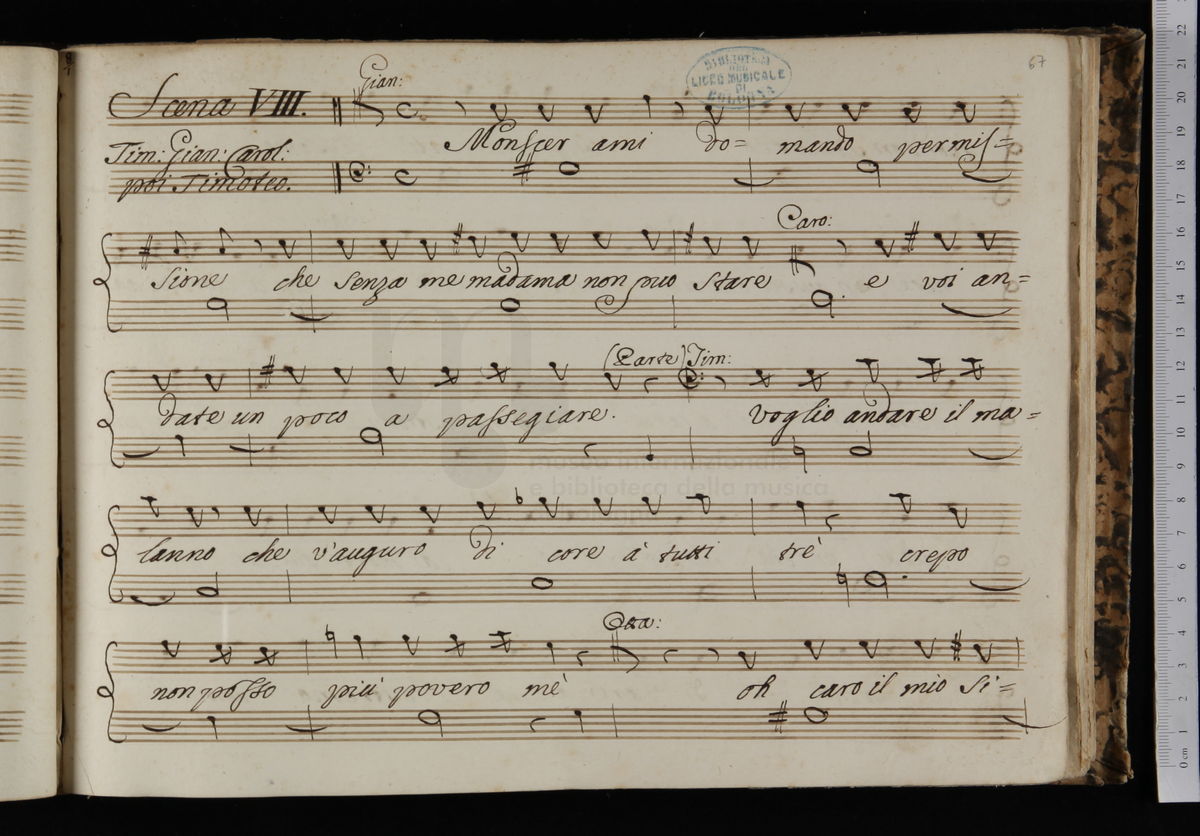 67
Gian:
Scena VIII.
BIBLIOTECA DEL LICEO MUSICALE DI BOLOGNA
Monscer ami do= mando permis=
Tim: Gian: Carol:
poi Timoteo.
Caro:
sione che senza me madama non può stare e voi an=
(Parte) Tim:
date un poco a passegiare. Voglio andare il ma=
museo internazionale
e biblioteca della musica
lanno che v'auguro di core à tutti trè crepo
non posso più povero mè oh caro il mio Si=
22
21
20
19
18
17
16
15
14
13
12
11
10
9
8
7
6
5
4
3
2
1
0 cm